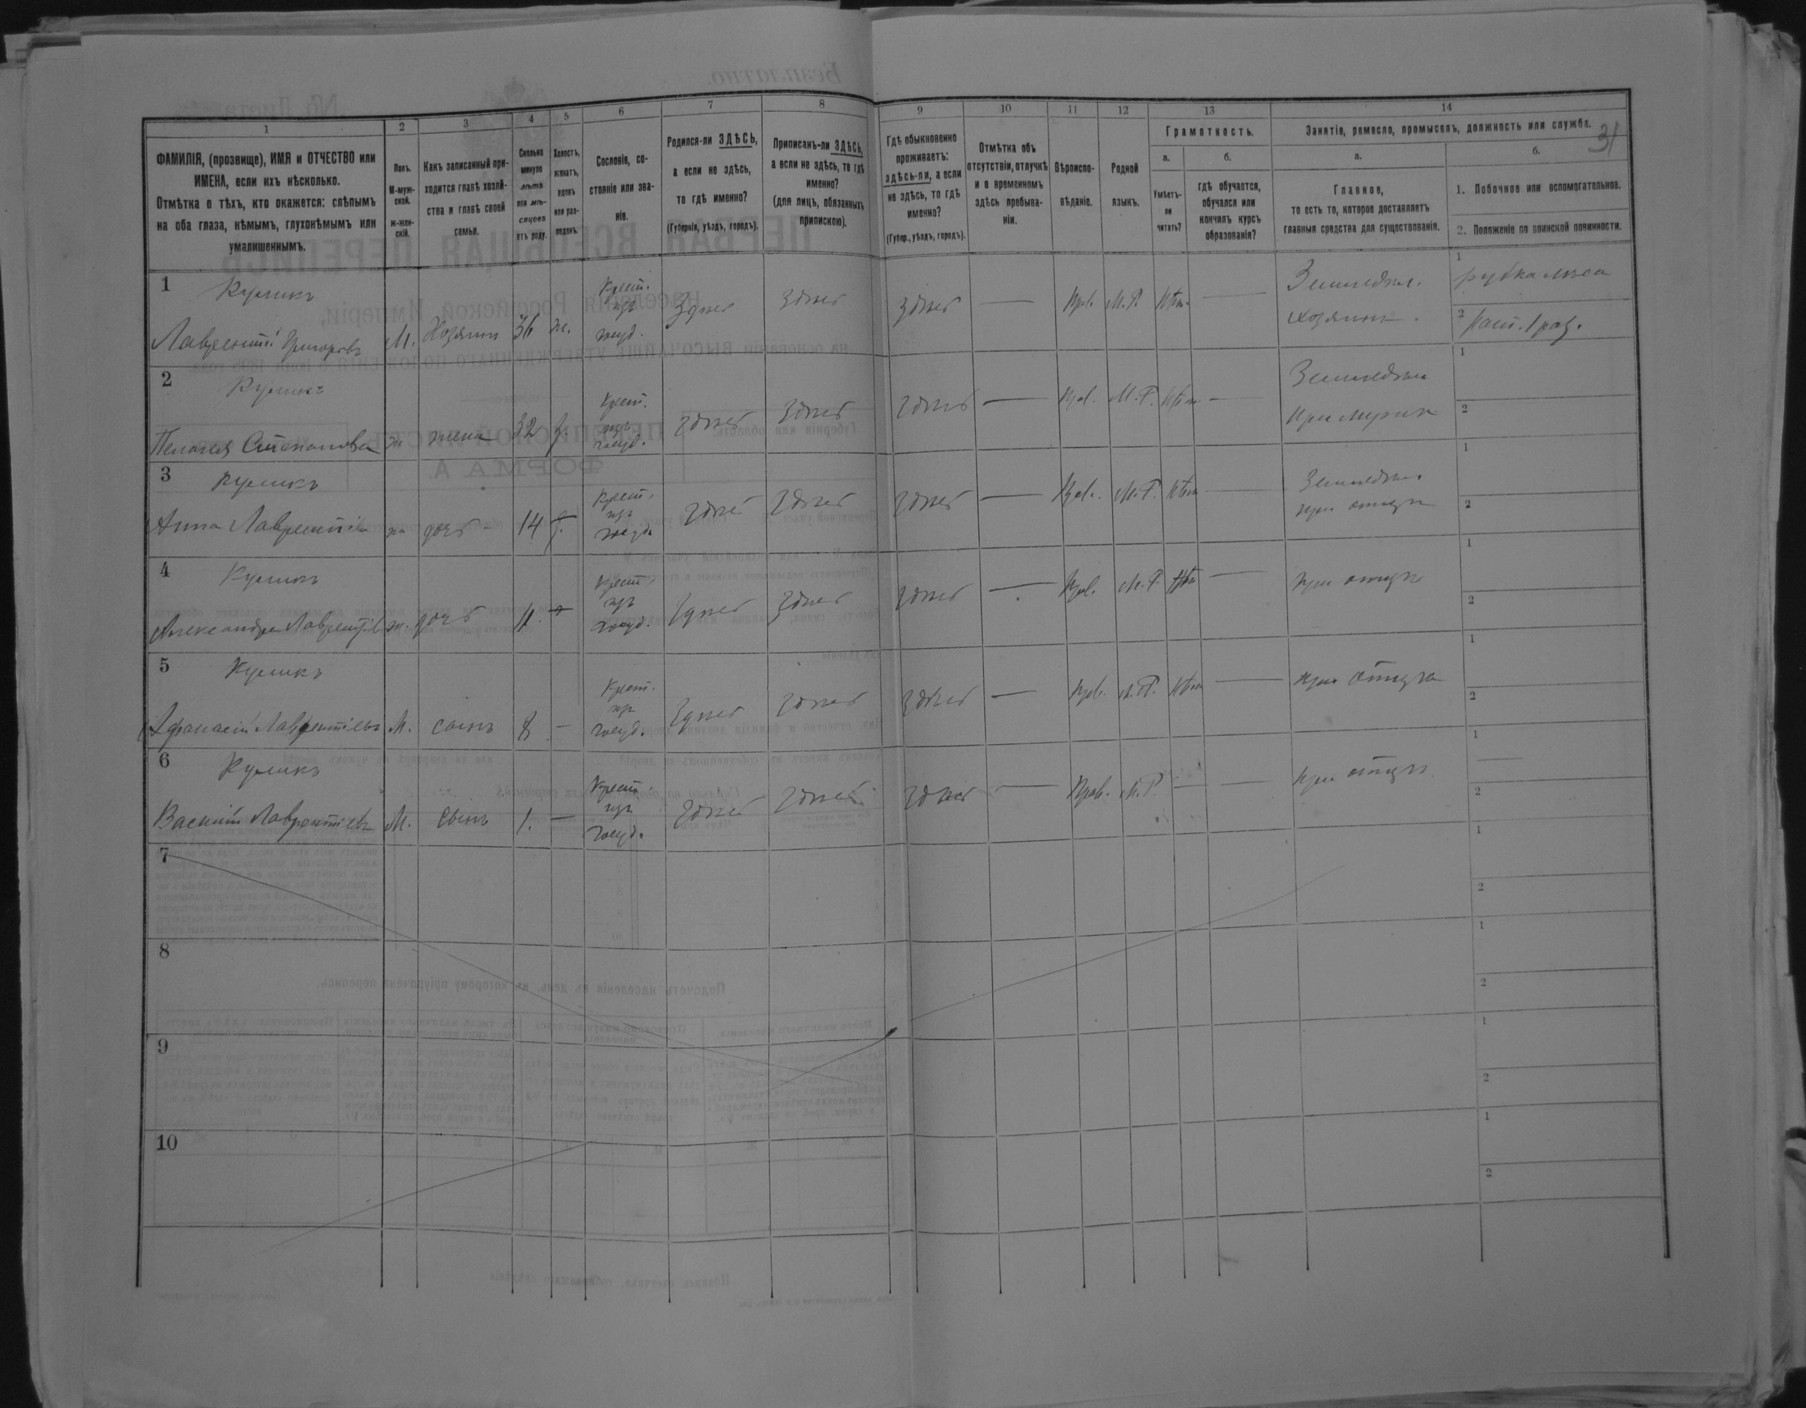 31
1
2
3
4
5
6
7
8
9
10
11
12
13
14
ФАМИЛІЯ, (прозвище), ИМЯ и ОТЧЕСТВО или
ИМЕНА, если ихъ нѣсколько.
Отмѣтка о тѣхъ, кто окажется: слѣпымъ
на оба глаза, нѣмымъ, глухонѣмымъ или
умалишеннымъ.
Полъ.
М-муж-
ской.
Ж-жен-
скій.
Какъ записанный при-
ходится главѣ хозяй-
ства и главѣ своей
семьи.
Сколько
минуло
лѣтъ
или мѣ-
сяцевъ
отъ роду.
Холостъ,
женатъ,
вдовъ
или раз-
веденъ.
Сословіе, со-
стояніе или зва-
ніе.
Родился-ли ЗДѢСЬ,
а если не здѣсь,
то гдѣ именно?
(Губернія, уѣздъ, городъ).
Приписанъ-ли ЗДѢСЬ,
а если не здѣсь, то гдѣ
именно?
(для лицъ, обязанныхъ
припискою).
Гдѣ обыкновенно
проживаетъ:
здѣсь-ли, а если
не здѣсь, то гдѣ
именно?
(Губер., уѣздъ, городъ).
Отмѣтка объ
отсутствіи, отлучкѣ
и о временномъ
здѣсь пребыва-
ніи.
Вѣроиспо-
вѣданіе.
Родной
языкъ.
Грамотность.
а.
б.
Умѣетъ-
ли
читать?
гдѣ обучается,
обучался или
кончилъ курсъ
образованія?
Занятіе, ремесло, промыселъ, должность или служба.
а.
б.
Главное,
то есть то, которое доставляетъ
главныя средства для существованія.
1. Побочное или вспомогательное.
2. Положеніе по воинской повинности.
1 Куликъ
Лаврентій Григоровъ М. Хозяинъ 36 ж. Крест. изъ госуд. здѣсь здѣсь здѣсь — Прав. М.Р. Нѣтъ — Земледѣл. хозяинъ. 1 рубка лѣса 2
2 Куликъ
Пелагея Степановна ж жена 32 з. Крест. изъ госуд. здѣсь здѣсь здѣсь — Прав. М.Р. Нѣтъ — Земледѣл. при мужѣ 1 2
3 Куликъ
Анна Лаврентіев ж дочь 14 Крест. изъ госуд. здѣсь здѣсь здѣсь — Прав. М.Р. Нѣтъ — Земледѣл. при отцѣ 1 2
4 Куликъ
Александра Лаврентіев ж. дочь 11. Крест. изъ госуд. здѣсь здѣсь здѣсь — Прав. М.Р. Нѣтъ — при отцѣ 1 2
5 Куликъ
Афанасій Лаврентіевъ М. сынъ 8 — Крест. изъ госуд. здѣсь здѣсь здѣсь — Прав. М.Р. Нѣтъ — при отцѣ 1 2
6 Куликъ
Василій Лаврентіевъ М. сынъ 1. — Крест. изъ госуд. здѣсь здѣсь здѣсь — Прав. М.Р. — — при отцѣ 1 — 2
7 1 2
8 1 2
9 1 2
10 1 2